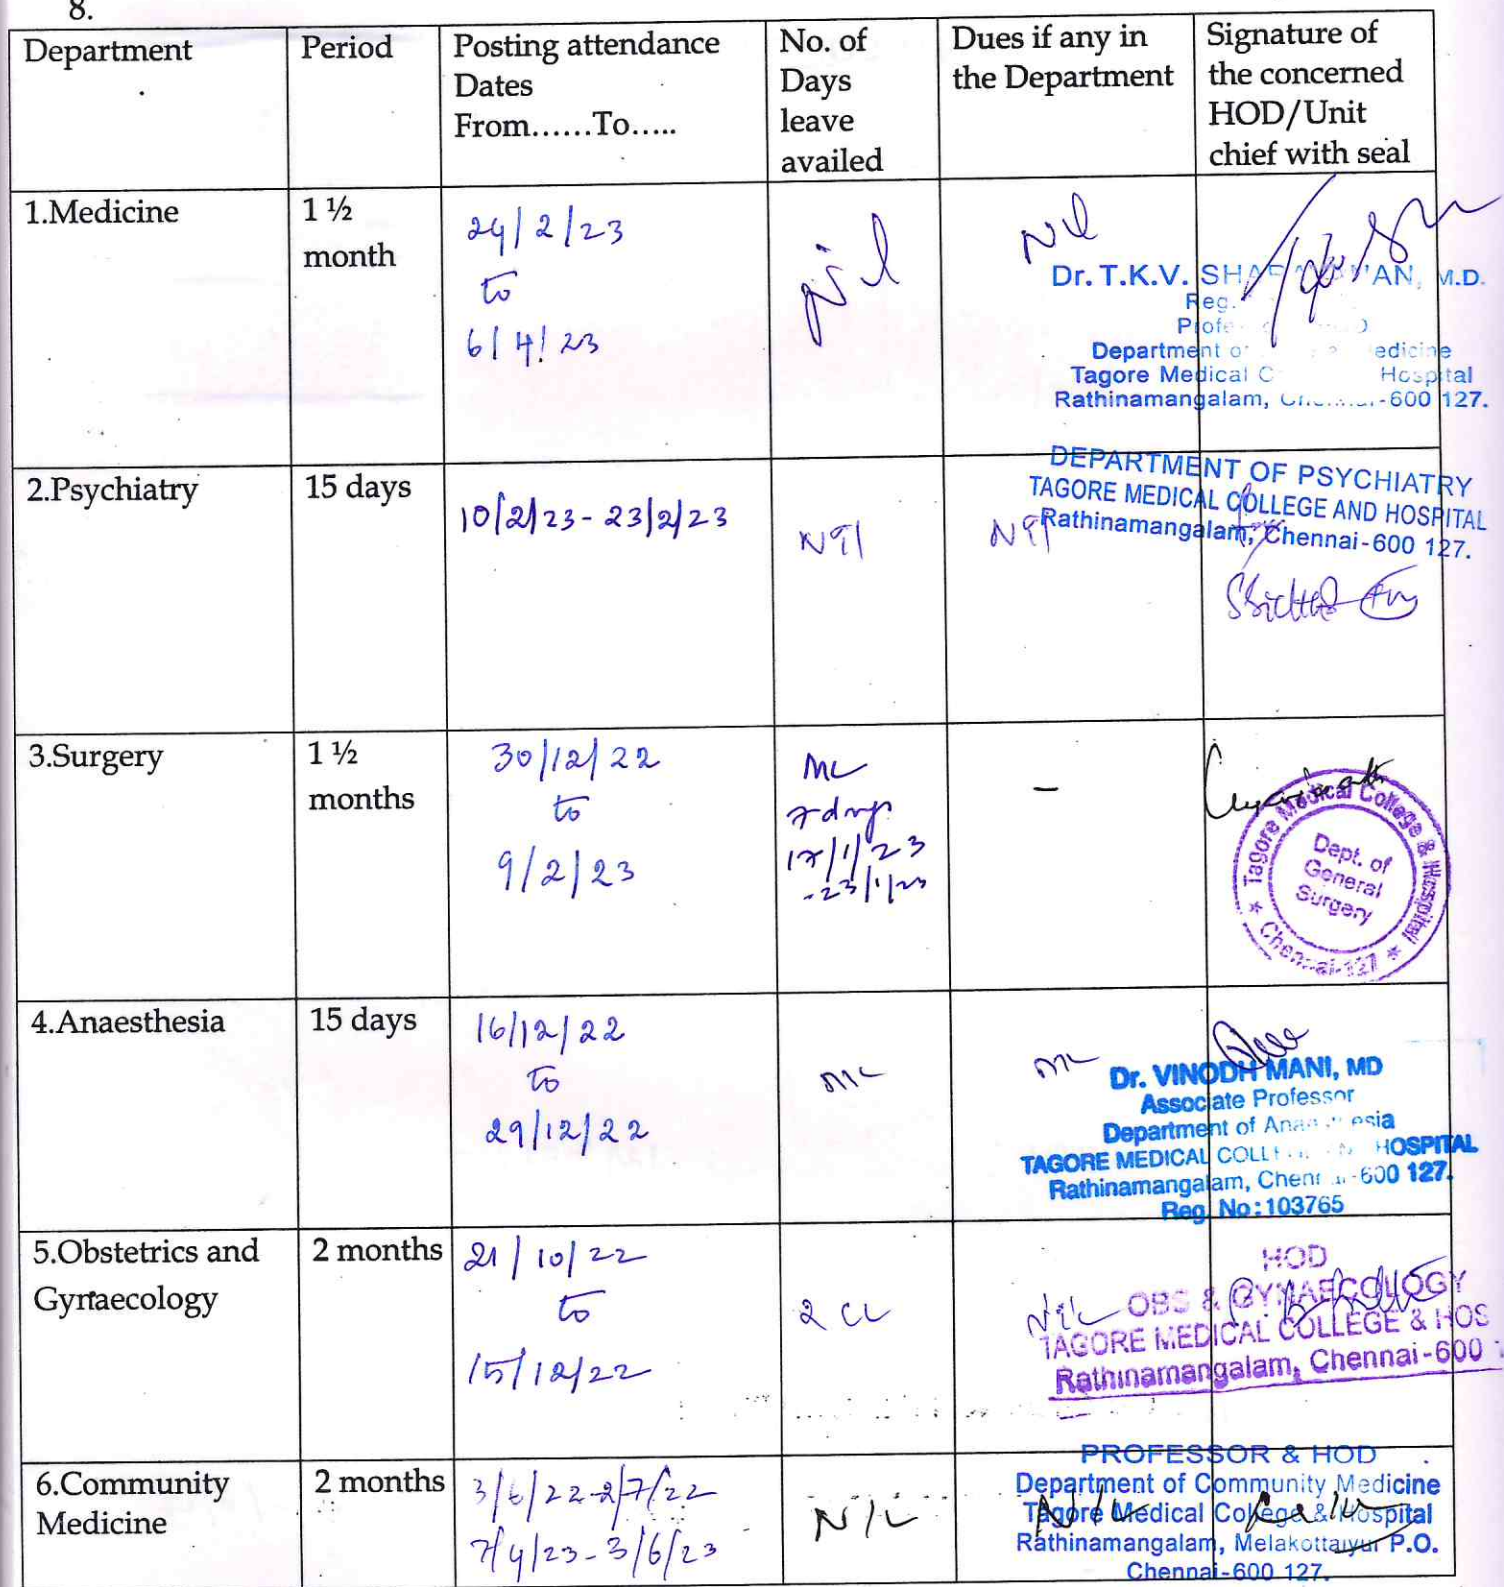 8.
Department
Period
Posting attendance
Dates
From......To.....
No. of
Days
leave
availed
Dues if any in
the Department
Signature of
the concerned
HOD/Unit
chief with seal
1.Medicine
1 ½
month
24/2/23
to
6/4/23
Nil
Nil
Dr. T.K.V. M.D.
Reg.
Department
Tagore Medical Hospital
Rathinamangalam, -600 127.
2.Psychiatry
15 days
10/2/23 - 23/2/23
Nil
Nil
DEPARTMENT OF PSYCHIATRY
TAGORE MEDICAL COLLEGE AND HOSPITAL
Rathinamangalam, Chennai-600 127.
3.Surgery
1 ½
months
30/12/22
to
9/2/23
ML
7 days
17/1/23
-23/1/23
-
Tagore Medical College & Hospital
Dept. of
General
Surgery
* Chennai-127 *
4.Anaesthesia
15 days
16/12/22
to
29/12/22
Dr. VINODH MANI, MD
Associate Professor
Department of
TAGORE MEDICAL HOSPITAL
Rathinamangalam, -600 127.
Reg. No:103765
5.Obstetrics and
Gynaecology
2 months
21/10/22
to
15/12/22
2 CL
Nil
HOD
OBS & GYNAECOLOGY
TAGORE MEDICAL COLLEGE & HOS
Rathinamangalam, Chennai-600
6.Community
Medicine
2 months
3/6/22-2/7/22
7/4/23-3/6/23
NIL
NIL
PROFESSOR & HOD
Department of Community Medicine
Tagore Medical College & Hospital
Rathinamangalam, Melakottaiyur P.O.
Chennai-600 127.